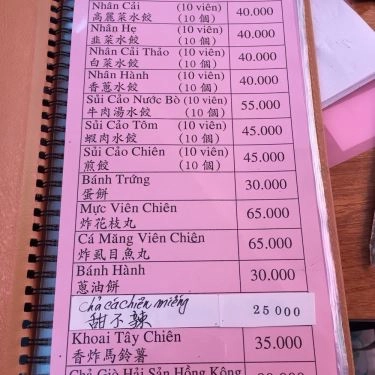 Nhân Cải (10 viên) 40.000
高麗菜水餃 (10 個)
Nhân Hẹ (10 viên) 40.000
韭菜水餃 (10 個)
Nhân Cải Thảo (10 viên) 40.000
白菜水餃 (10 個)
Nhân Hành (10 viên) 40.000
香蔥水餃 (10 個)
Sủi Cảo Nước Bò (10 viên) 55.000
牛肉湯水餃 (10 個)
Sủi Cảo Tôm (10 viên) 45.000
蝦肉水餃 (10 個)
Sủi Cảo Chiên (10 viên) 45.000
煎餃 (10 個)
Bánh Trứng 30.000
蛋餅
Mực Viên Chiên 65.000
炸花枝丸
Cá Măng Viên Chiên 65.000
炸虱目魚丸
Bánh Hành 30.000
蔥油餅
chả cá chiên miếng 25 000
甜不辣
Khoai Tây Chiên 35.000
香炸馬鈴薯
Chả Giò Hải Sản Hồng Kông